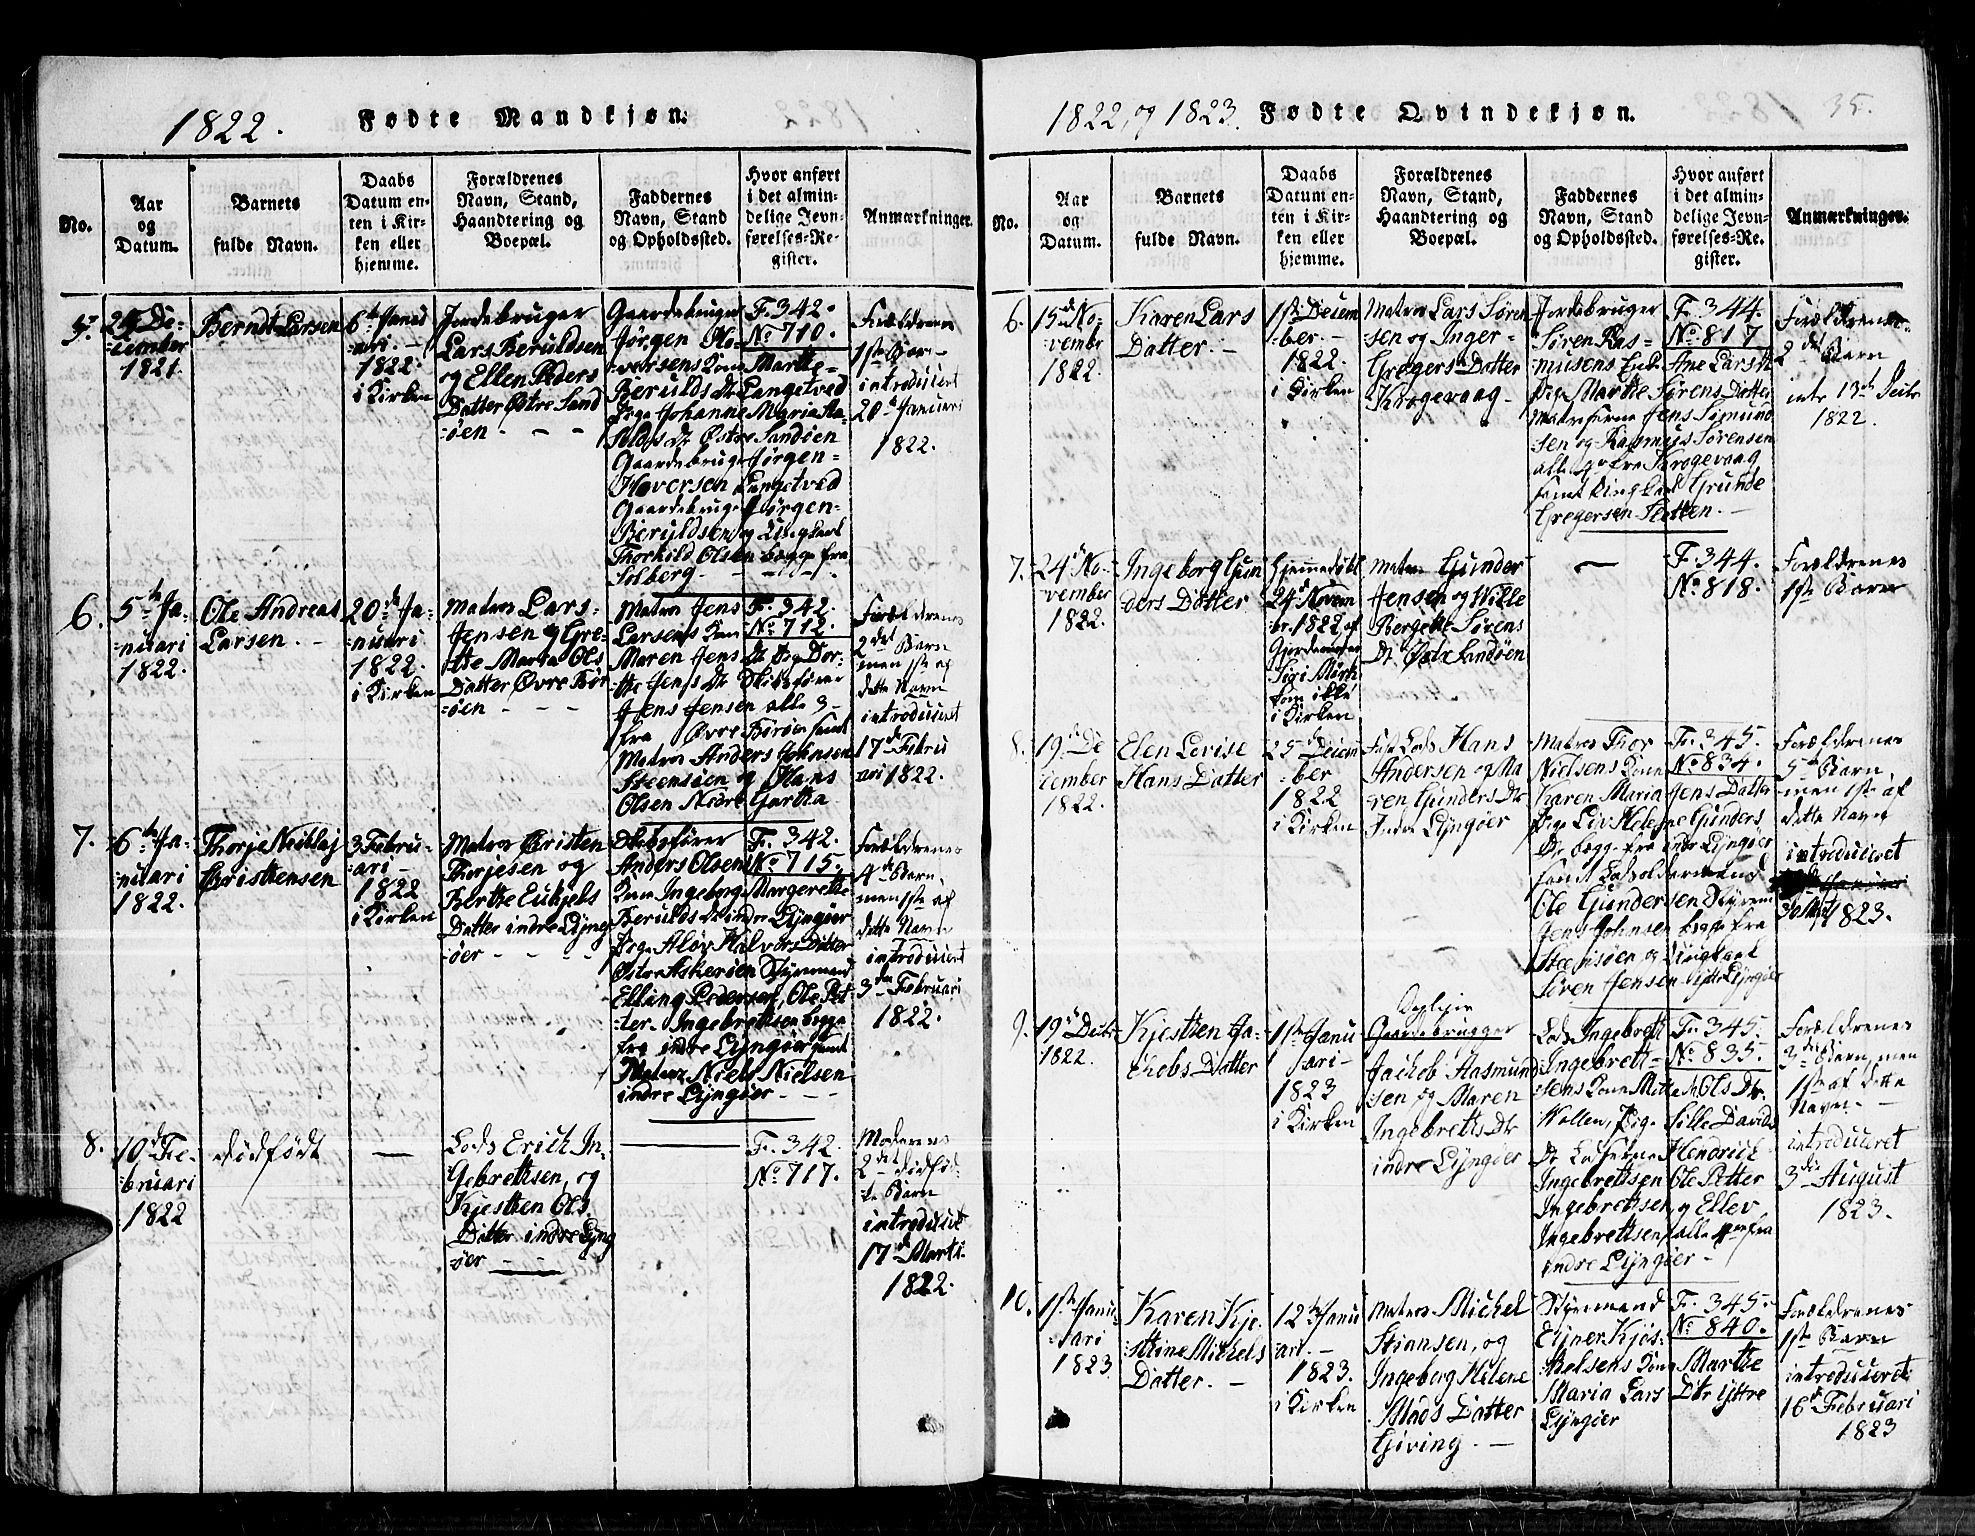 1822. Fødte Mandkjøn.
No.
Aar
og
Datum.
Barnets
fulde Navn.
Daabs
Datum en-
ten i Kir-
ken eller
hjemme.
Forældrenes
Navn, Stand,
Haandtering og
Boepæl.
Faddernes
Navn, Stand
og Opholdssted.
Hvor anført
i det almin-
delige Jevn-
førelses-Re-
gister.
Anmærkninger.
5.
24 De-
cember
1821.
Berndt Larsen
6te Janu
ari. -
1822.
i Kirken
Jordebruger
Lars Beruldsen
og Ellen Peders
Datter Østre Sand
øen - - -
Gaardebruger
Jørgen Ho-
versens Kone Marthe
Berulds Dr. Langetved
Pige Johanne Maria
Dr. Østre Sandøen
Gaardebruger Jørgen
Hoversen Langetved
Gaardebruger Jørgen
Beruldsen og Ungkarl
Thorkild Olsen begge fra
Solberg
F. 342.
No 710.
Forældrenes
1ste Barn
introduceret
20de Januari
1822.
6.
5te Ja-
nuari
1822.
Ole Andreas
Larsen. -
20de Ja-
nuari
1822.
i Kirken
Matros Lars
Jensen og Gre-
the Maria Ols
Datter Øvre Bor
øen - - -
Matros Jens
Larsens Kone
Maren Jens Dr. Pige Dor-
the Jens Dr. Skibsfører
Jens Jensen alle 3
fra Øvre Borøen samt
Matros Anders Johnsen
Steensøen og Hans
Olsen Nedre Gartha
F. 342.
No 712.
Forældrenes
2det Barn
men 1ste af
dette Navn
introduceret
17de Febru
ari 1822.
7.
6te Ja-
nuari
1822.
Thorje Neitlaj
Christensen
3 Febru-
ari -
1822
i Kirken
Matros Christen
Thorjesen og
Berthe Eukjels
Datter indre Lyng
øer - - - -
Skibsfører
Anders Olsens
Kone Ingeborg Margrethe
Berulds Dr. indre Lyngøer
Pige Aløv Halvors Datter
Østre Askerøen Styrmand
Elling Pedersen, Ole Pet-
ter Ingebrethsen begge
fra indre Lyngøer samt
Matroz Niels Nielsen
indre Lyngøer
F. 342.
No 715.
Forældrenes
4de Barn,
men 1ste af
dette Navn
introduceret
3die Februari
1822.
8.
10de Fe-
bruari
1822
dødfødt
Lods Erich In-
gebrethsen, og
Kjesthen Ols
Datter indre Lyng
øer
F. 342.
No 717.
Moderens
2det dødfød-
te Barn
introduceret
17de Marti
1822.
1822, og 1823. Fødte Qvindekjøn. 35.
No.
Aar
og
Datum.
Barnets
fulde Navn.
Daabs
Datum en-
ten i Kir-
ken eller
hjemme.
Forældrenes
Navn, Stand,
Haandtering og
Boepæl.
Faddernes
Navn, Stand
og Opholdssted.
Hvor anført
i det almin-
delige Jevn-
førelses-Re-
gister.
Anmærkninger.
6.
15de No-
vember
1822.
Karen Lars
Datter. -
1ste Decem
ber. -
1822.
i Kirken
Matros Lars Søren
sen og Inger
Gregers Datter
Krogevaag -
Jordebruger
Søren Ras-
musens Enke Ane Lars Dr.
Pige Marthe Sørens Datter
Matroserne Jens Simund
sen og Rasmus Sørensen
alle 4re fra Krogevaag
samt Ungkarl Grunde
Gregersen
F. 344.
No 817
Forældrenes
2det Barn
intr 13de Decbr
1822.
7.
24de No-
vember
1822.
Ingeborg Gun
ders Datter
Hjemmedøbt
24de Novem
br. 1822 af
Gjordemoder
Siri Mørk
kom ikke
i Kirken
Matros Gunder
Jensen og Wille
Bergethe Sørens
Dr. Østre Sandøen
F. 344.
No 818.
Forældrenes
1ste Barn
8.
19de De
cember
1822.
Elen Lovise
Hans Datter
25de Decem
ber
1822
i Kirken
Fast Lods Hans
Andersen og Ma
ren Gunders Dr
Indre Lyngøer
Matros Thor
Nielsens Kone
Karen Maria Jens Datter
Pige Liv Helene Gunders
Dr. begge fra indre Lyngøer
samt Lodsoldermand
Ole Gundersen Styrm
Jens Johnsen begge fra
Steensøen og Ungkarl
Søren Jensen Ydtre Lyngøer
F. 345.
No 834.
Forældrenes
5te Barn,
men 1ste af
dette Navn
introduceret
1823.
9.
19de Decbr
1822.
Kjesthen Ja-
chobs Datter
1ste Janu
ari -
1823
i Kirken
Gaardebrugger
Jachob Aasmund
sen, og Maren
Ingebreths Dr
indre Lyngøer
Lods Ingebreth
Ingebreth-
sens Kone Mette M. Ols Dr.
Wollen, Pig. Sille Davids
Dr. Lodserne Hendrich
Ingebrethsen Ole Petter
Ingebrethsen, og Ellev
Ingebrethsen alle 4re fra
indre Lyngøer -
F. 345.
No 835.
Forældrenes
3die Barn, men
1ste af dette
Navn. -
introduceret
3die August
1823.
10.
1ste Janu-
ari
1823
Karen Kje-
stine Michels
Datter. -
12te Janu
ari. -
1823.
i Kirken
Matros Michel
Stiansen, og
Ingeborg Helene
Mads Datter
Giving. -
Styrmand
Ejner Kjøs-
Kone Marthe
Maria Lars Dtr Yttre
Lyngøer
F. 345.
No 840.
Forældrenes
1ste Barn
introduceret
16de Februari
1823